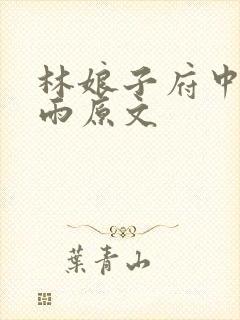 林娘子府中
雨原文
葉青山